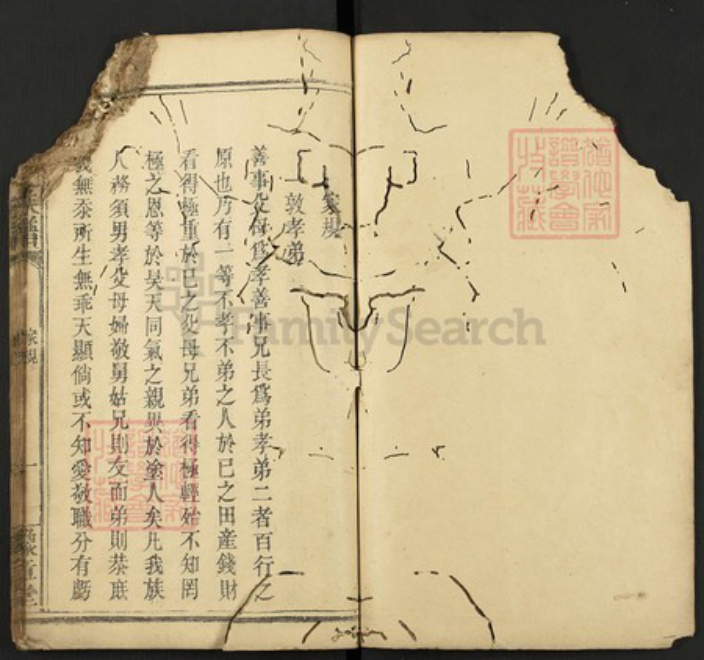 家規
一敦孝弟
善事父母爲孝善事兄長爲弟孝弟二者百行之
原也乃有一等不孝不弟之人於已之田產錢財
看得極重於已之父母兄弟看得極輕殆不知罔
極之恩等於昊天同氣之親異於塗人矣凡我族
人務須男孝父母婦敬舅姑兄則友而弟則恭庶
幾無忝所生無乖天顯倘或不知愛敬職分有虧
家規
一
FamilySearch